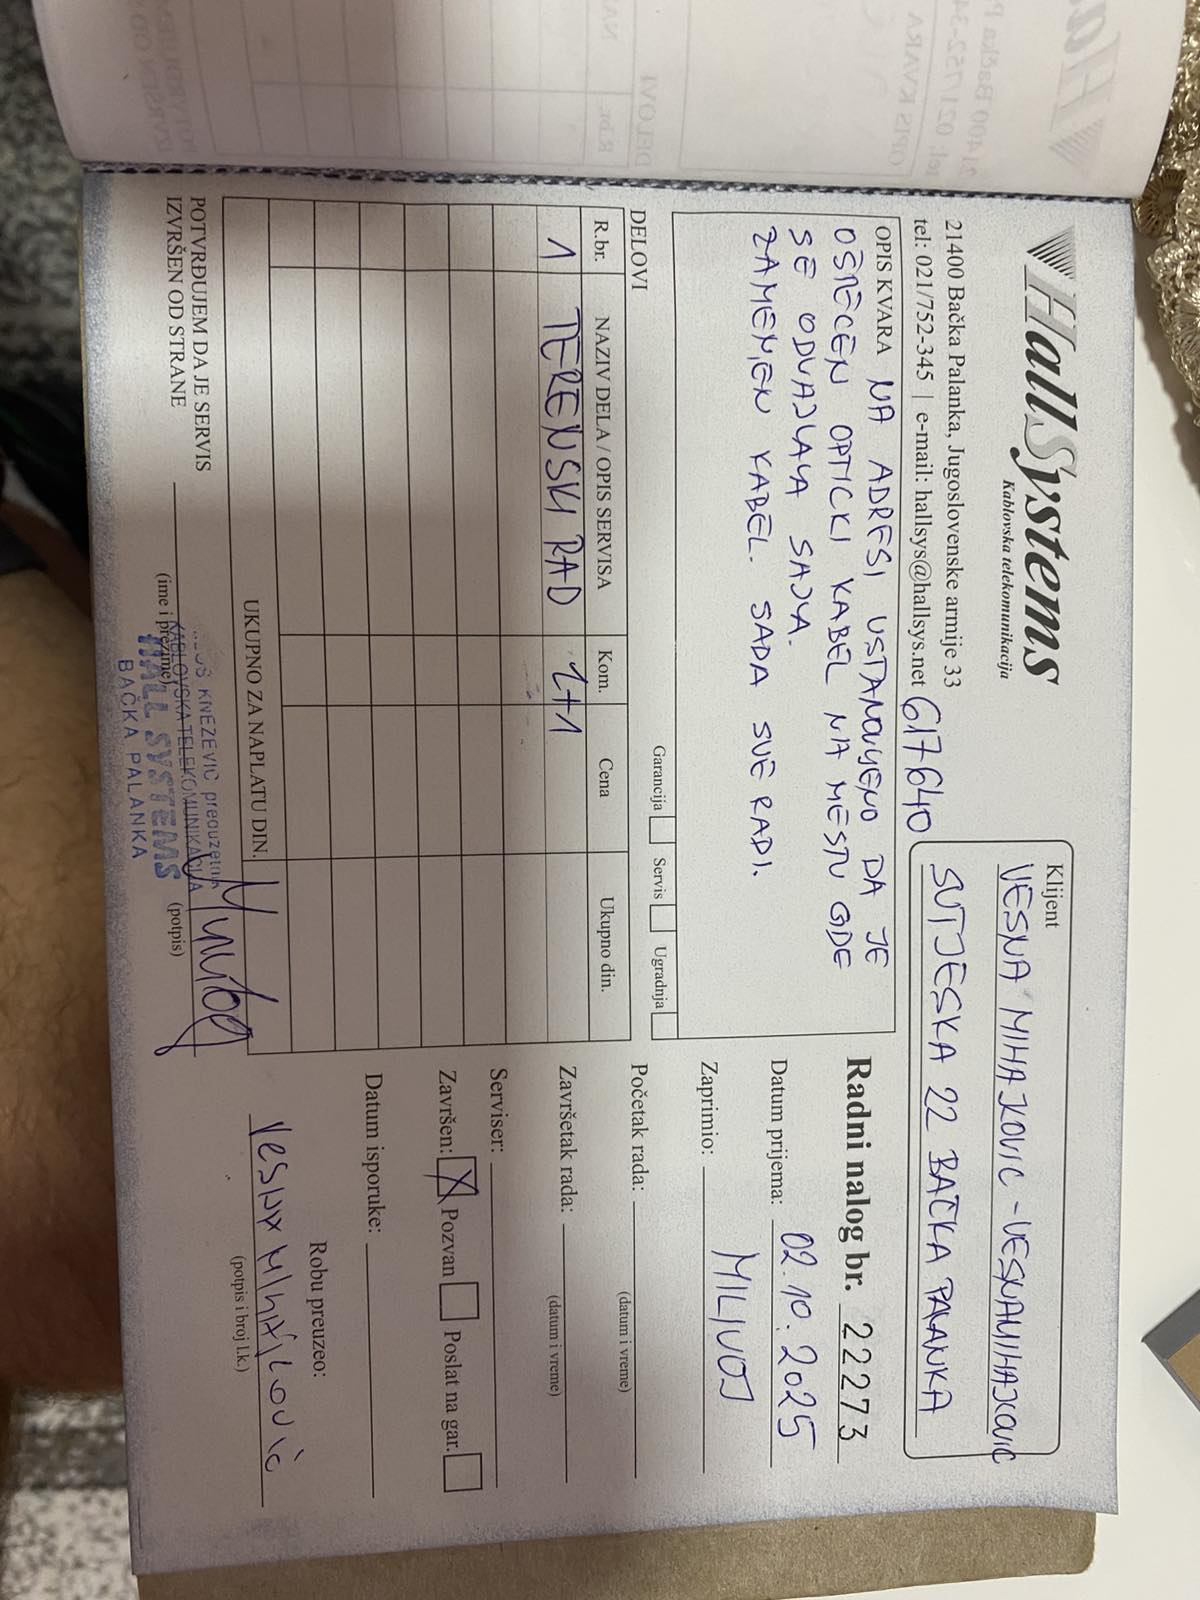 HallSystems
Kablovska telekomunikacija
21400 Bačka Palanka, Jugoslovenske armije 33
tel: 021/752-345 | e-mail: hallsys@hallsys.net
617640
Klijent
VESNA MIHAJKOVIC - VESNAMIHAJKOVIC
SUTJESKA 22 BAČKA PALANKA
OPIS KVARA NA ADRESI USTANOVLJENO DA JE
OŠTEĆEN OPTICKI KABEL NA MESTU GDE
SE ODVAJLAVA SAJVA.
ZAMENJEN KABEL. SADA SVE RADI.
Radni nalog br. 22273
Datum prijema: 02.10.2025
Zaprimio: MILIVOJ
Garancija Servis Ugradnja
DELOVI
R.br. NAZIV DELA / OPIS SERVISA Kom. Cena Ukupno din.
1 TERENSKI RAD 1+1
UKUPNO ZA NAPLATU DIN.
Početak rada:
(datum i vreme)
Završetak rada:
(datum i vreme)
Serviser:
Završen: X Pozvan Poslat na gar.
Datum isporuke:
Robu preuzeo:
VESNA MIHAJLOVIĆ
(potpis i broj l.k.)
POTVRĐUJEM DA JE SERVIS
IZVRŠEN OD STRANE
(ime i prezime)
(potpis)
KNEŽEVIĆ preduzetnik
KABLOVSKA TELEKOMUNIKACIJA
HALL SYSTEMS
BAČKA PALANKA